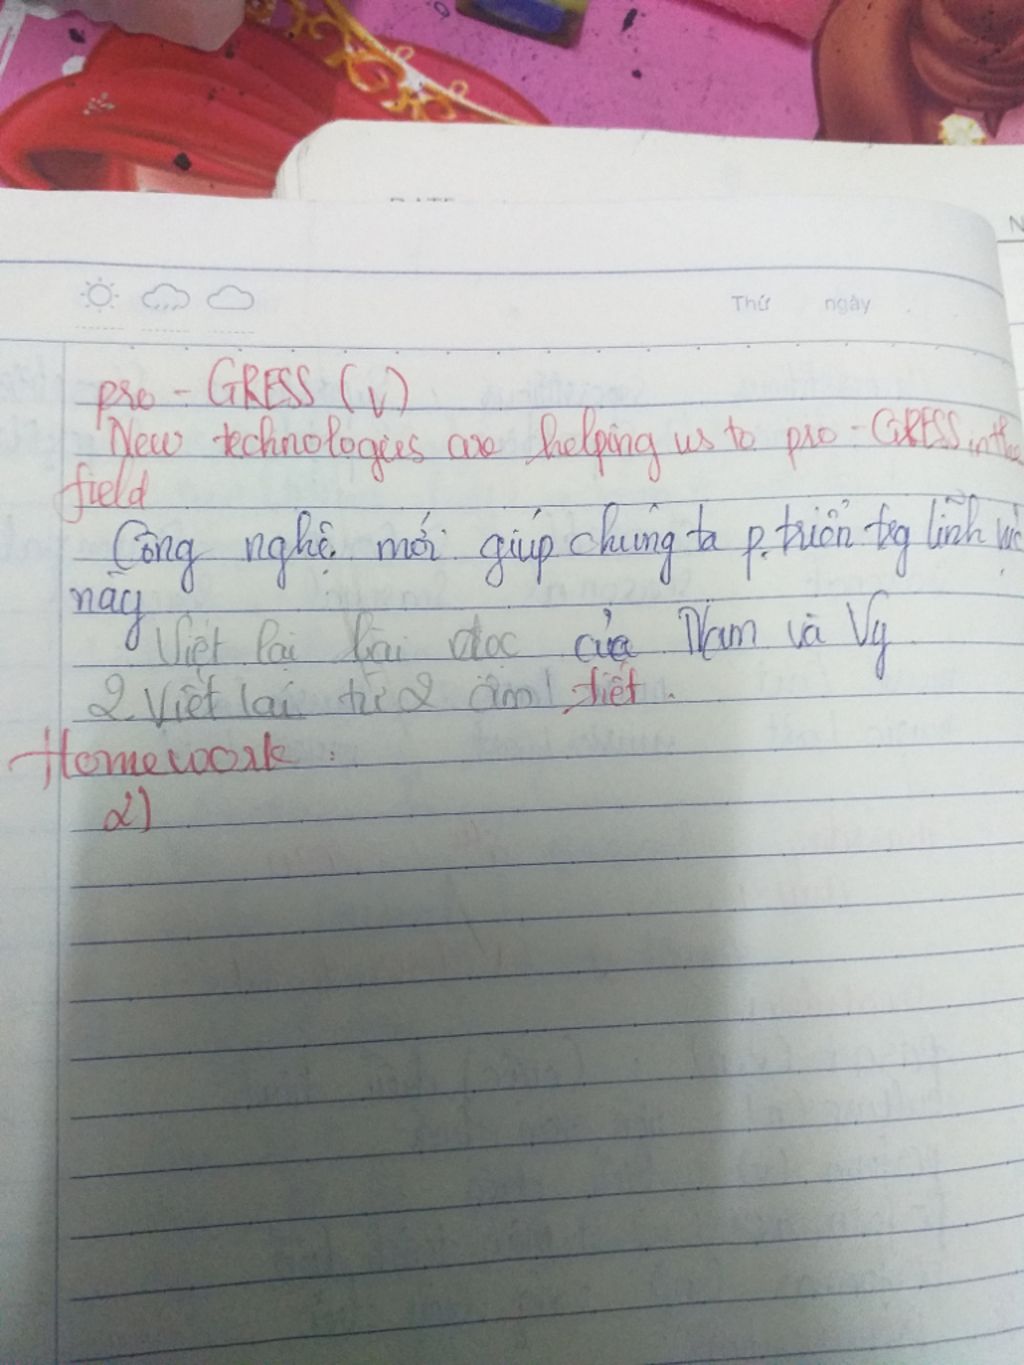 DATE
N
Thứ ngày
pro - GRESS (v)
New technologies are helping us to pro - GRESS in the
field
Công nghệ mới giúp chúng ta p.triển trg lĩnh vực
này
Viết lại bài đọc của Nam và Vy
2 Viết lại từ 2 âm tiết.
Homework:
2)